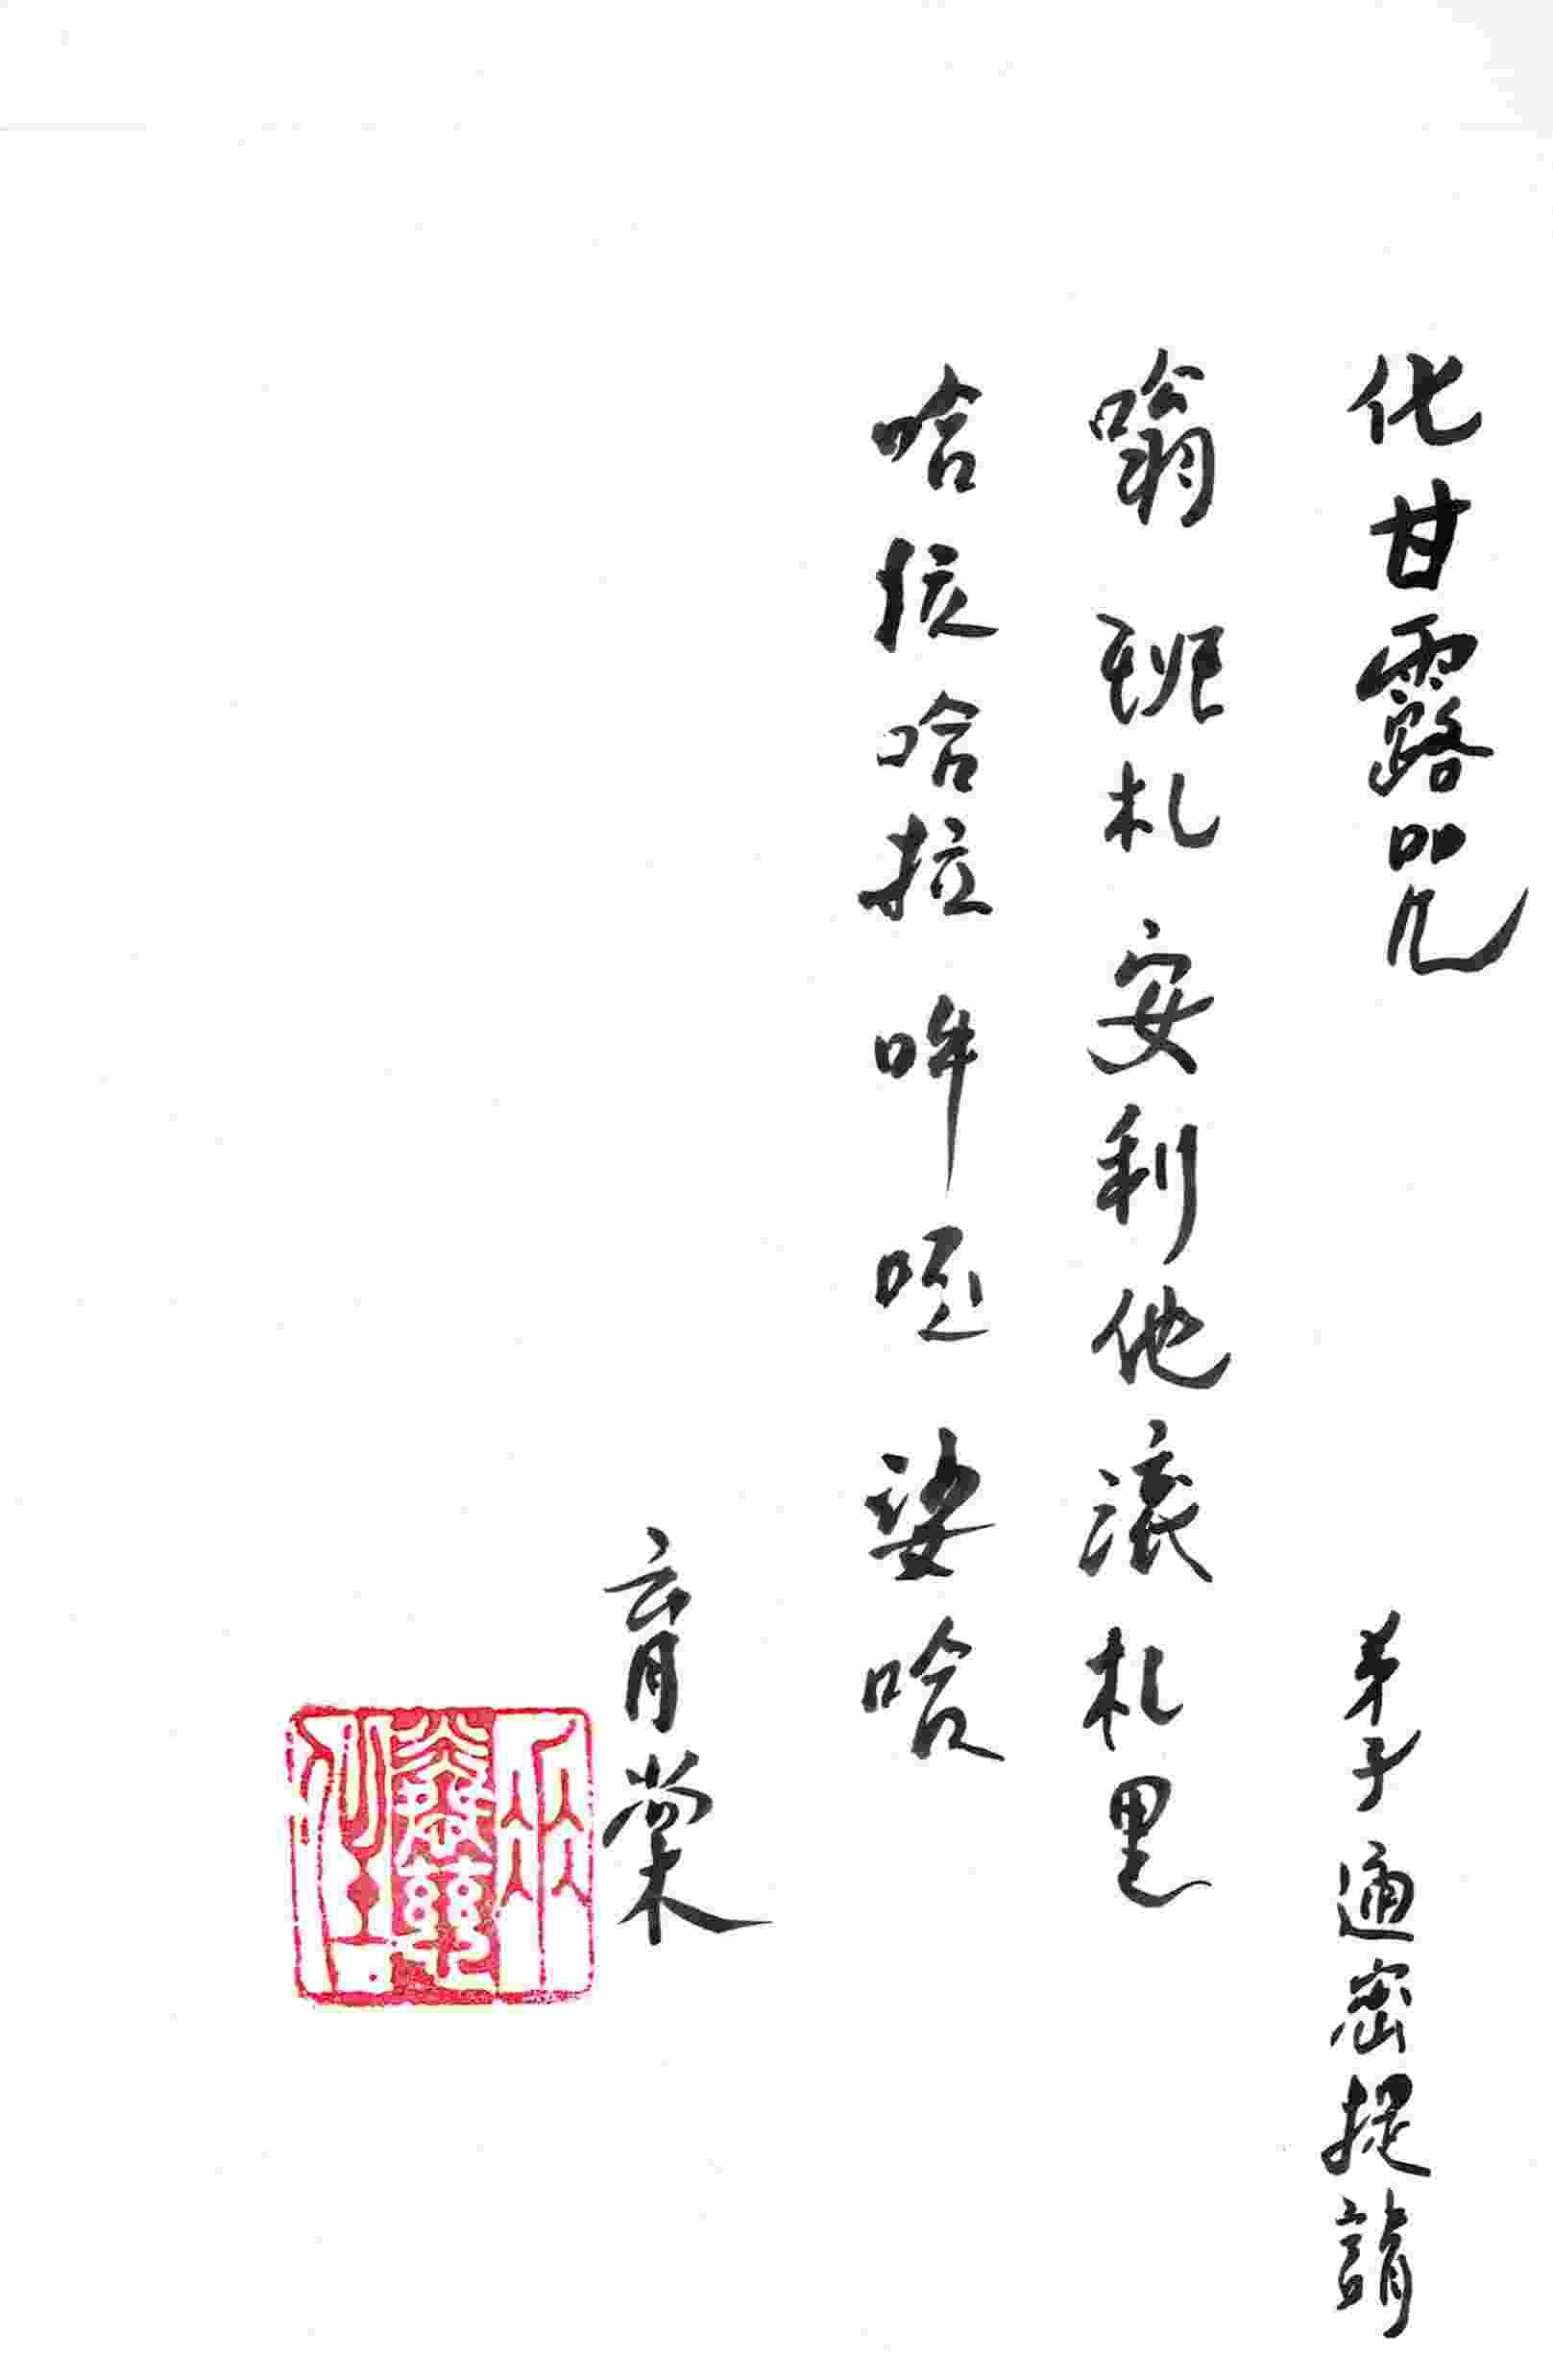 化甘露咒 弟子通密提請
嗡 班札 安利他滚札里
哈拉哈拉 吽 呸 娑哈
育棠